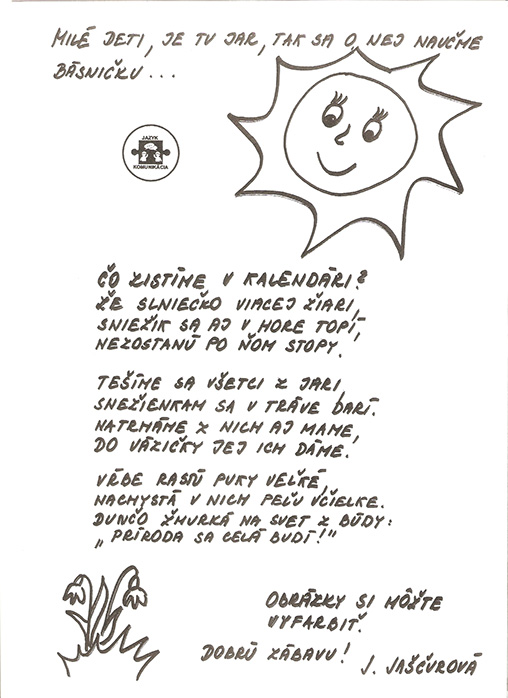 MILÉ DETI, JE TU JAR, TAK SA O NEJ NAUČME
BÁSNIČKU...
JAZYK
KOMUNIKÁCIA
ČO ZISTÍME V KALENDÁRI?
ŽE SLNIEČKO VIACEJ ŽIARI,
SNIEŽIK SA AJ V HORE TOPÍ,
NEZOSTANÚ PO ŇOM STOPY!
TEŠÍME SA VŠETCI Z JARI,
SNEŽIENKAM SA V TRÁVE DARÍ.
NATRHÁME Z NICH AJ MAME,
DO VÁZIČKY JEJ ICH DÁME.
VŔBE RASTÚ PUKY VEĽKÉ,
NACHYSTÁ V NICH PEĽU VČIELKE.
DUNČO ŽMURKÁ NA SVET Z BÚDY:
„PRÍRODA SA CELÁ BUDÍ!"
OBRÁZKY SI MÔŽTE
VYFARBIŤ.
DOBRÚ ZÁBAVU!
J. JAŠČUROVÁ